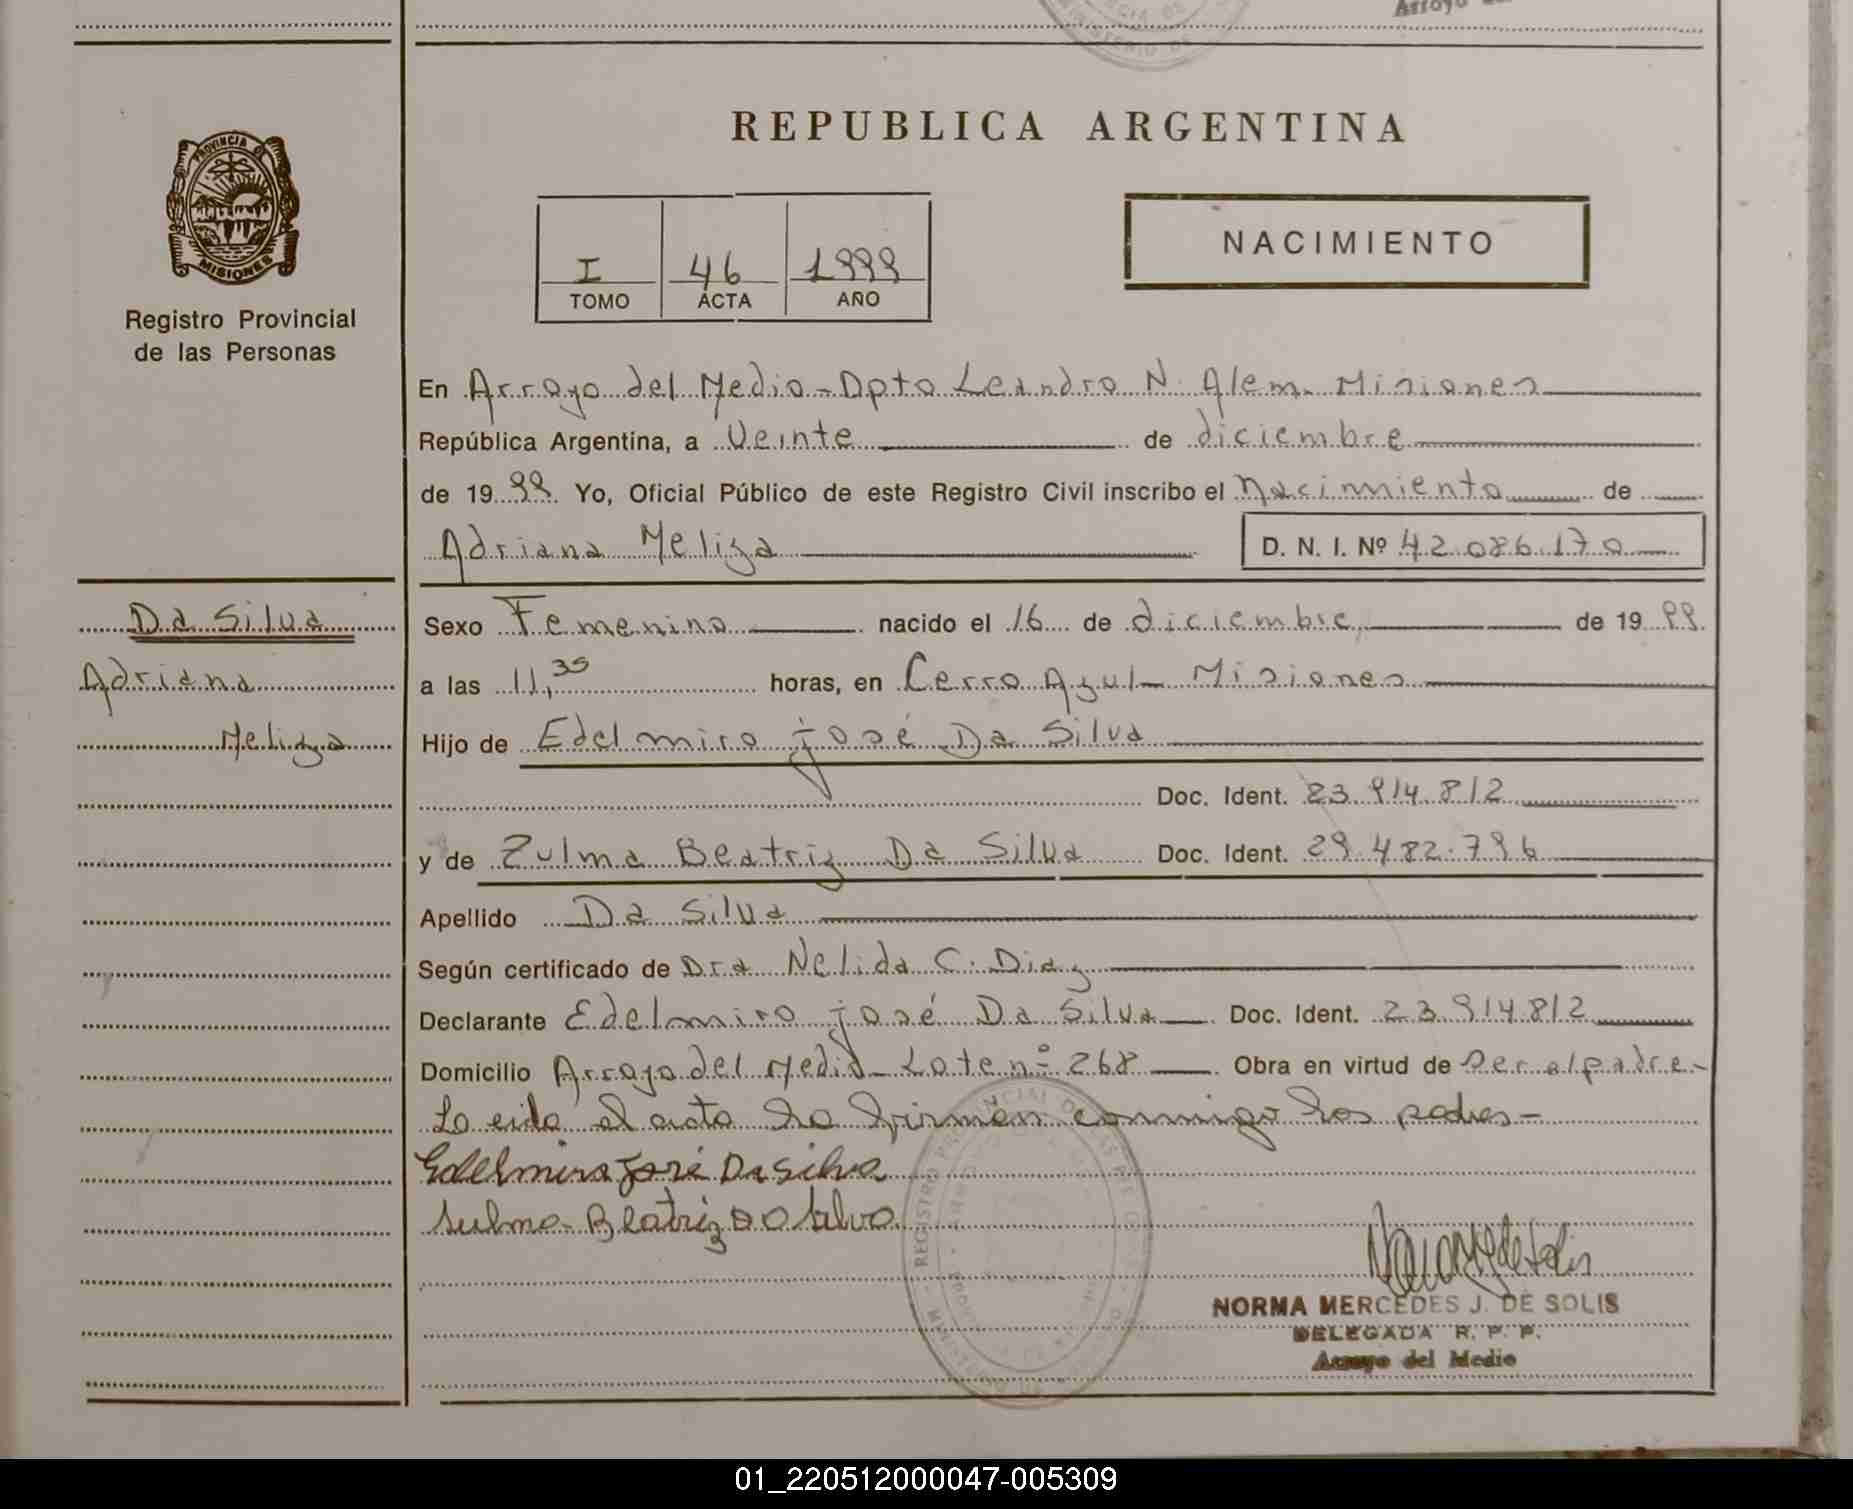 Arroyo
MINISTERIO DE
REPUBLICA ARGENTINA
PROVINCIA DE
MISIONES
Registro Provincial
de las Personas
I 46 1999
TOMO ACTA AÑO
NACIMIENTO
En Arroyo del Medio - Dpto Leandro N. Alem - Misiones
República Argentina, a Veinte de diciembre
de 1999. Yo, Oficial Público de este Registro Civil inscribo el Nacimiento de
Adriana Meliza D. N. I. Nº 42.086.170
Da Silva
Adriana
Meliza
Sexo Femenino nacido el 16 de diciembre, de 1999.
a las 11,35 horas, en Cerro Azul - Misiones
Hijo de Edelmiro josé Da Silva
Doc. Ident. 23.914.812
y de Zulma Beatriz Da Silva Doc. Ident. 29.482.796
Apellido Da Silva
Según certificado de Dra Nelida C. Diaz
Declarante Edelmiro josé Da Silva Doc. Ident. 23.914.812
Domicilio Arroyo del Medio - Lote nº 268 Obra en virtud de ser el padre -
Leida el acta la firman conmigo los padres -
Edelmiro José Da Silva
Sulma Beatriz Da Silva
NORMA MERCEDES J. DE SOLIS
DELEGADA R. P. P.
Arroyo del Medio
01_220512000047-005309